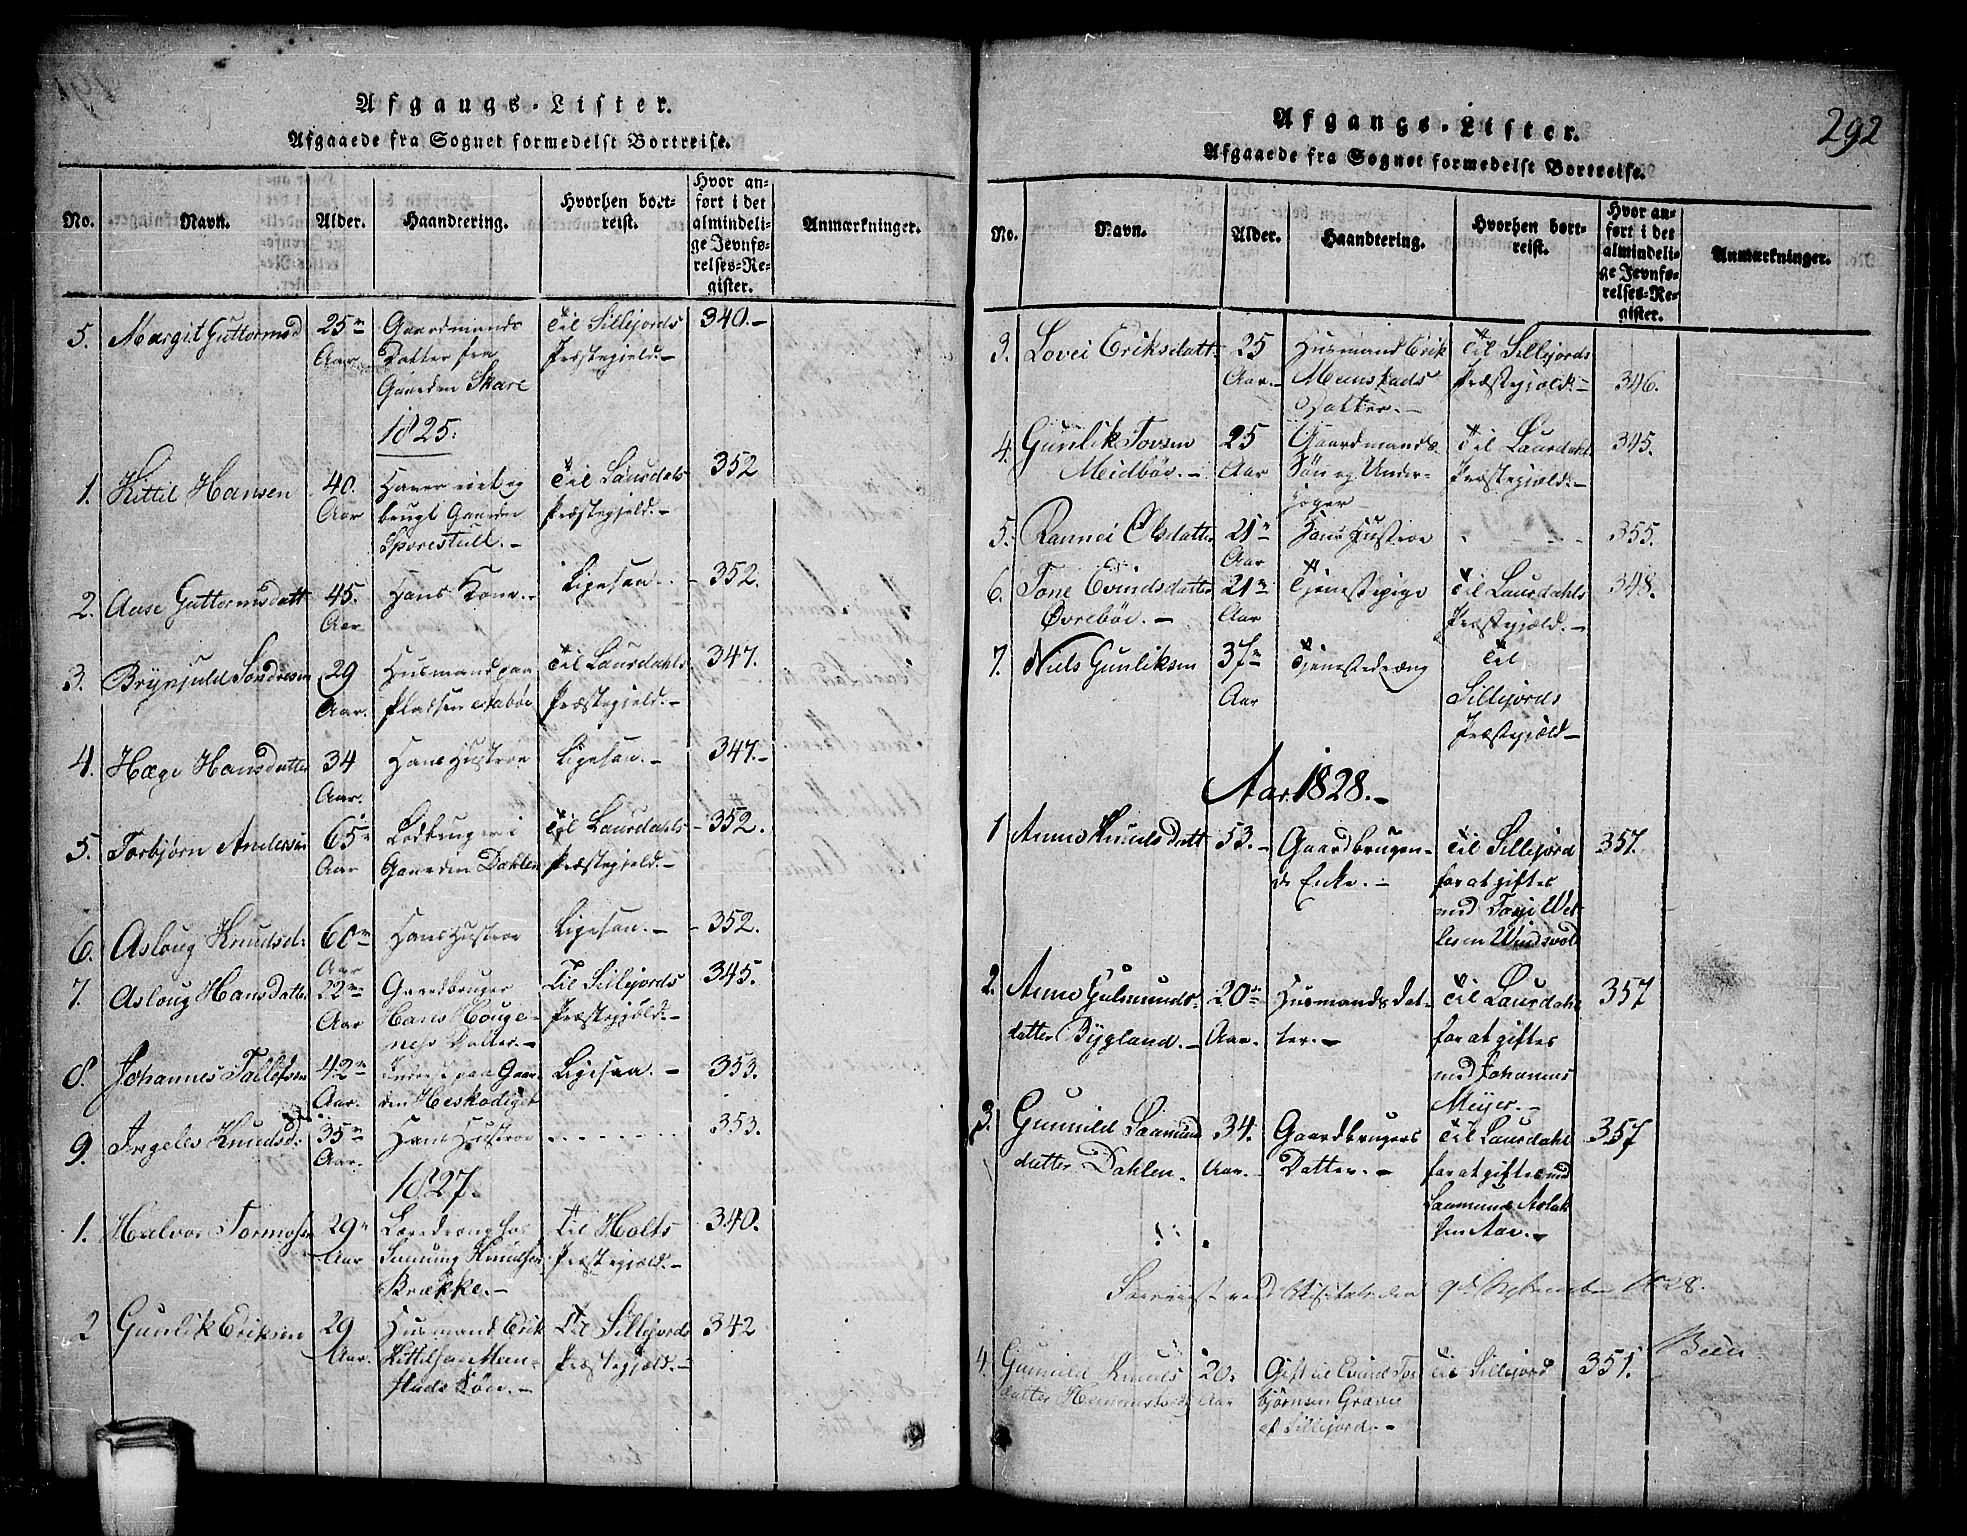 Afgangs-Lister.
Afgaaede fra Sognet formedelst Bortreise.
No.
Navn.
Alder.
Haandtering.
Hvorhen bort-
reist.
Hvor an-
ført i det
almindeli-
ge Jevnfø-
relses-Re-
gister.
Anmærkninger.
5. Margit Guttormsd 25 Aar Gaardmands Datter fra Gaarden Skare Til Sillejords Præstegjeld.- 340.-
1825.
1. Kittil Hansen 40. Aar Gaarden Sporestull.- Til Laurdals Præstegjeld.- 352
2. Aase Guttormsdatt 45. Aar Hans Kone.- Ligesaa.- 352.
3. Brynjuld Sondresen 29 Aar. Husmand paa Pladsen Til Laurdahls Præstegjeld.- 347.
4. Hæge Hansdatter 34 Aar. Hans Hustroe Ligesaa.- 347.-
5. Torbjørn Andersen 65 Aar Lodbruger i Gaarden Dahlen Til Laurdahls Præstegjeld.- 352.
6. Asloug Knudsd: 60 Aar Hans Hustroe Ligesaa.- 352.
7. Asloug Hansdatter 22 Aar Gaardbruger Hans Houge- Datter.- Til Sillejords Præstegjeld.- 345.
8. Johannes Tallefsen 42 Aar. paa Gaar- den Heskodiget Ligesaa.- 353.
9. Ingelev Knudsd: 35 Aar. Hans Hustroe 353.
1827.
1. Halvor Tormosen 29 Aar hos Knudsen Brække.- Til Holts Præstegjeld.- 340.
2 Gunlik Eriksen 29 Aar. Husmand Erik Kittilsen Men- stads Søn.- Til Sillejords Præstegjeld.- 342
292
Afgangs-Lister.
Afgaaede fra Sognet formedelst Bortreise.
No.
Navn.
Alder.
Haandtering.
Hvorhen bort-
reist.
Hvor an-
ført i det
almindeli-
ge Jevnfø-
relses-Re-
gister.
Anmærkninger.
3. Lovei Eriksdatt. 25 Aar.- Husmand Erik Menstads Datter.- Til Sillejords Præstegjeld.- 346.
4. Gunlik Tovsen Meidbøe.- 25 Aar Gaardmands Søn og Under- Til Laurdahl Præstegjeld.- 345.
5. Rannei Olsdatter 21 Aar Hans Hustroe 355.
6. Tone Evindsdatter Øvrebøe.- 21 Aar Tjenestepige Til Laurdahls Præstegjeld.- 348.
7. Niels Gunliksen 37 Aar Tjenestedræng Til Sillejords Præstegjeld-
Aar 1828.-
1 Anne Knudsdatt 53.- Gaardbrugen- de Enke.- Til Sillejord for at giftes med Wet- lesen Windsvold 357.
2. Anne Gulmunds- datter Bygland.- 20 Aar. Husmands Dat- ter.- Til Laurdahl for at giftes med Johannes Meyer.- 357
3. Gunnild Saamund datter Dahlen. 34. Aar. Gaardbrugers Datter.- Til Laurdahl for at giftes med Saamund Aslak- sen Aae.- 357
ved Visitats den 9de September 1828.
4. Gunnild Knuds datter 20. Aar Gift til Evind Tor- bjørnsen Gravie af Sillejord.- Til Sillejord 351.